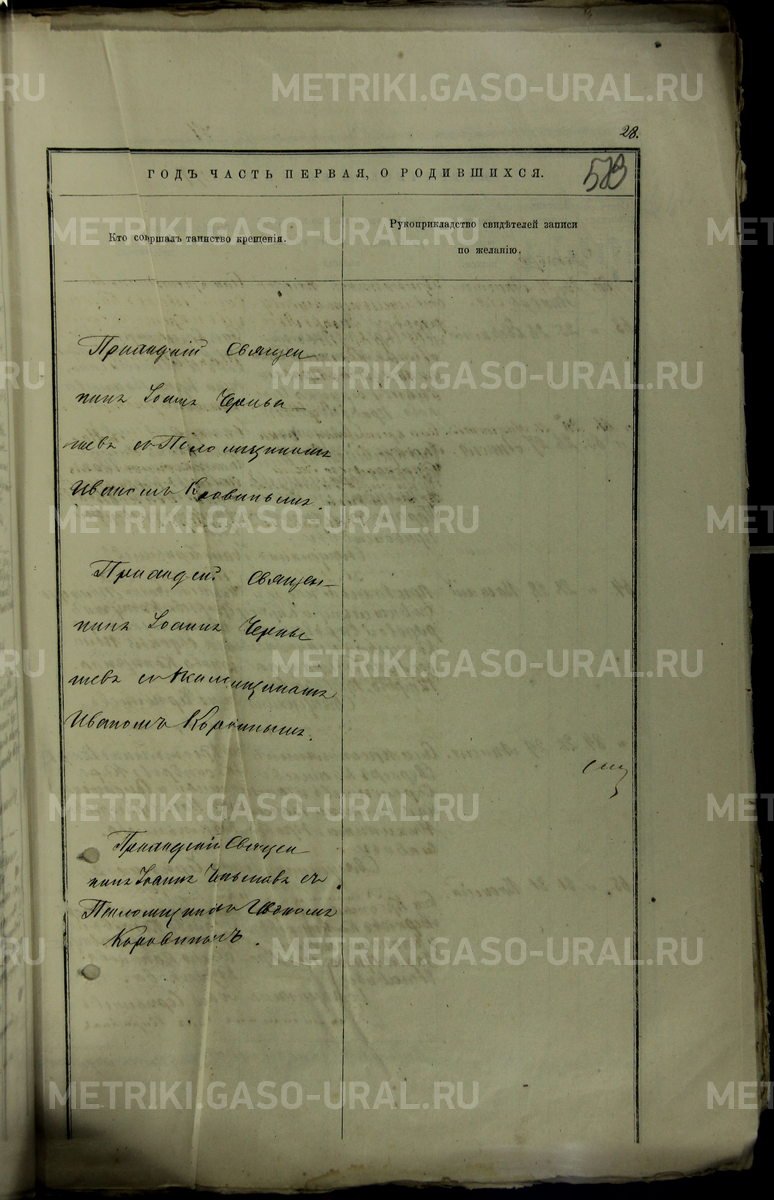 28.
583
ГОДЪ ЧАСТЬ ПЕРВАЯ, О РОДИВШИХСЯ.
Кто совршалъ таинство крещенія.
Рукоприкладство свидѣтелей записи
по желанію.
Приходскій Священ
никъ Іоаннъ Черны
шевъ съ Псаломщикомъ
Иваномъ Коровинымъ.
Приходскій Священ-
никъ Іоаннъ Черны
шевъ съ Псаломщикомъ
Иваномъ Коровинымъ.
Приходскій Священ
никъ Іоаннъ съ
Псаломщикомъ Иваномъ
Коровинымъ.
METRIKI.GASO-URAL.RU